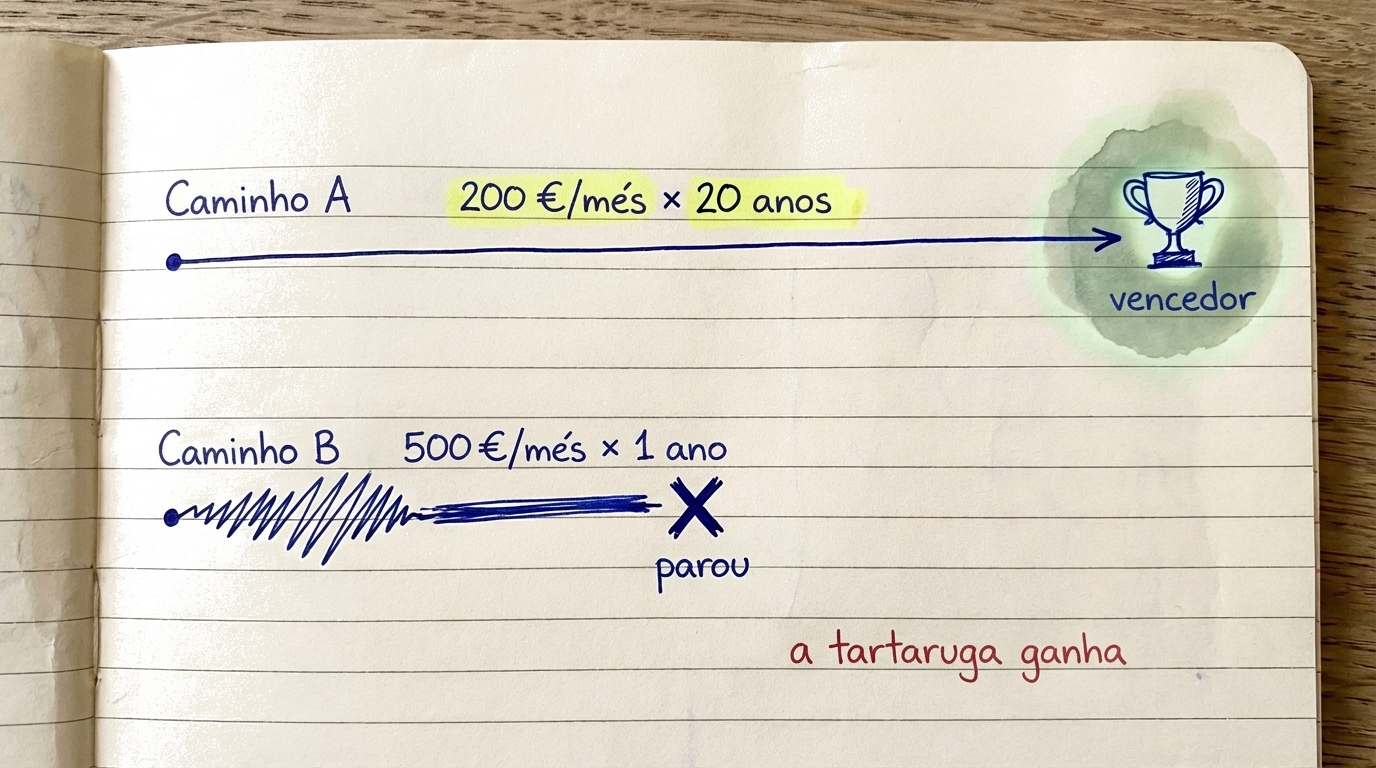 Caminho A 200 €/més × 20 anos
vencedor
Caminho B 500 €/més × 1 ano
parou
a tartaruga ganha